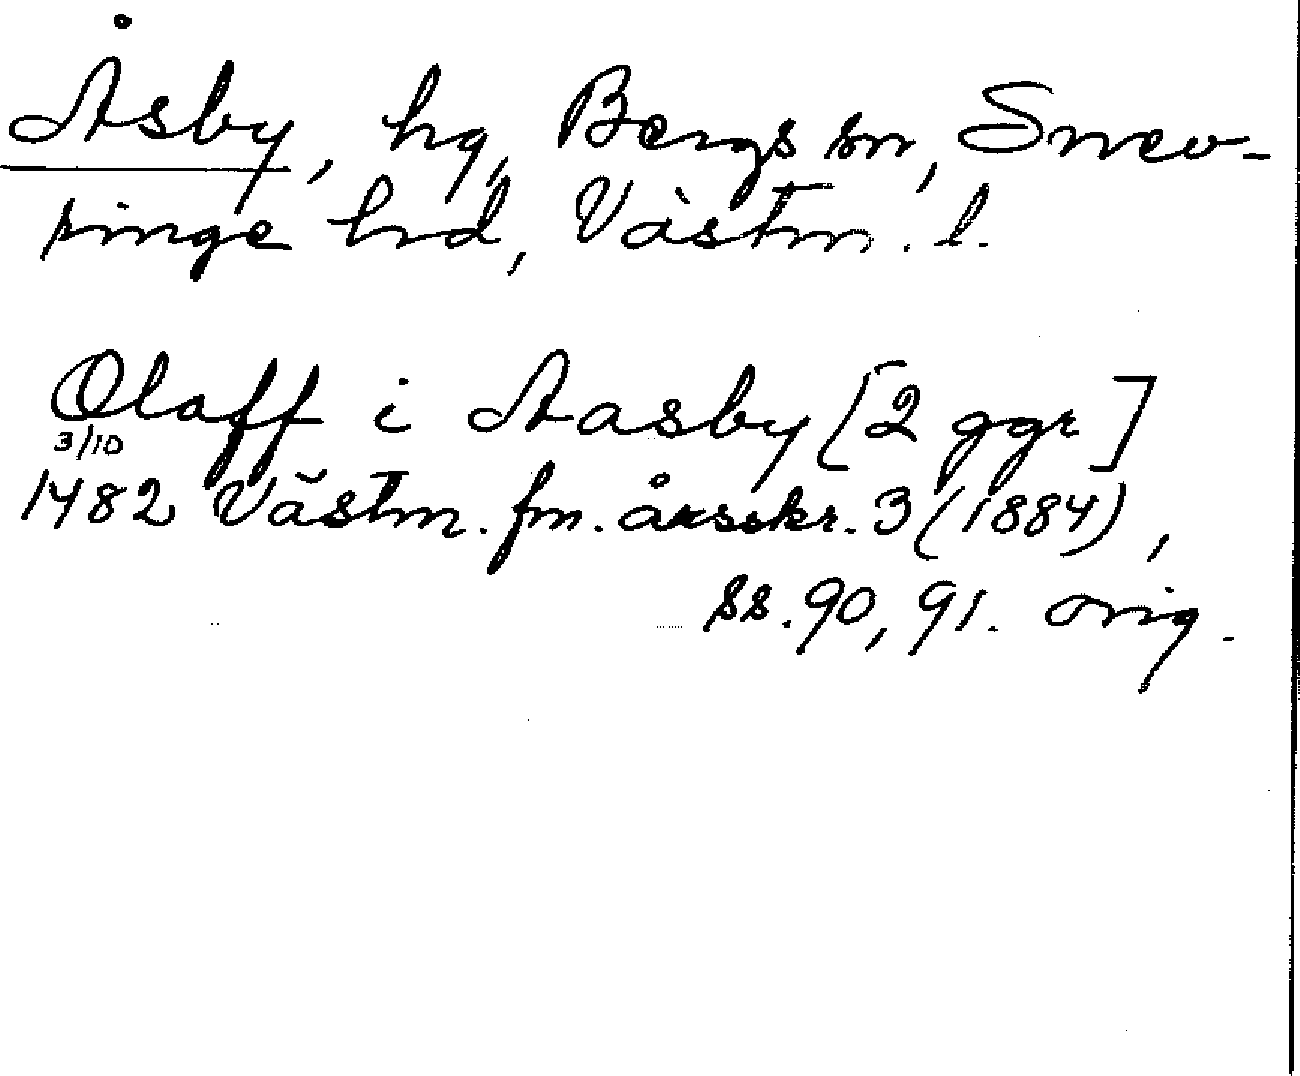 Åsby, hg, Bergs sn, Snev-
ringe hd, Västm. l.
Olaff i Aasby [2 ggr]
3/10
1482 Västm. fm. årsskr. 3 (1884),
ss. 90, 91. orig.